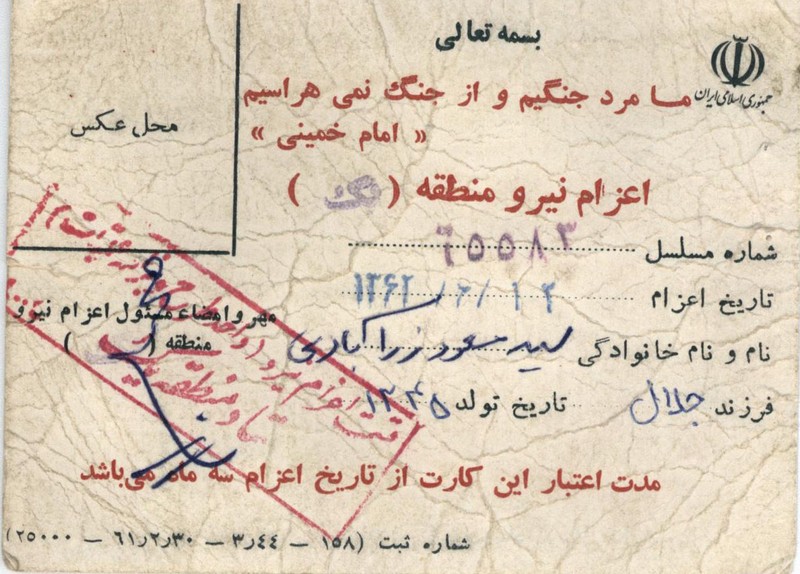 بسمه تعالی
جمهوری اسلامی ایران
ما مرد جنگیم و از جنگ نمی هراسیم
« امام خمینی »
محل عکس
اعزام نیرو منطقه ( یک )
شماره مسلسل ۶۵۵۸۳
تاریخ اعزام ۱۳۶۲/۶/۱۲
نام و نام خانوادگی سید مسعود زراآبادی
فرزند جلال تاریخ تولد ۱۳۴۵
مهر و امضاء مسئول اعزام نیرو
منطقه ( )
مدت اعتبار این کارت از تاریخ اعزام سه ماه می‌باشد
شماره ثبت (۱۵۸ – ۳٫۴۴ – ۶۱٫۲٫۳۰ – ۲۵۰۰۰)